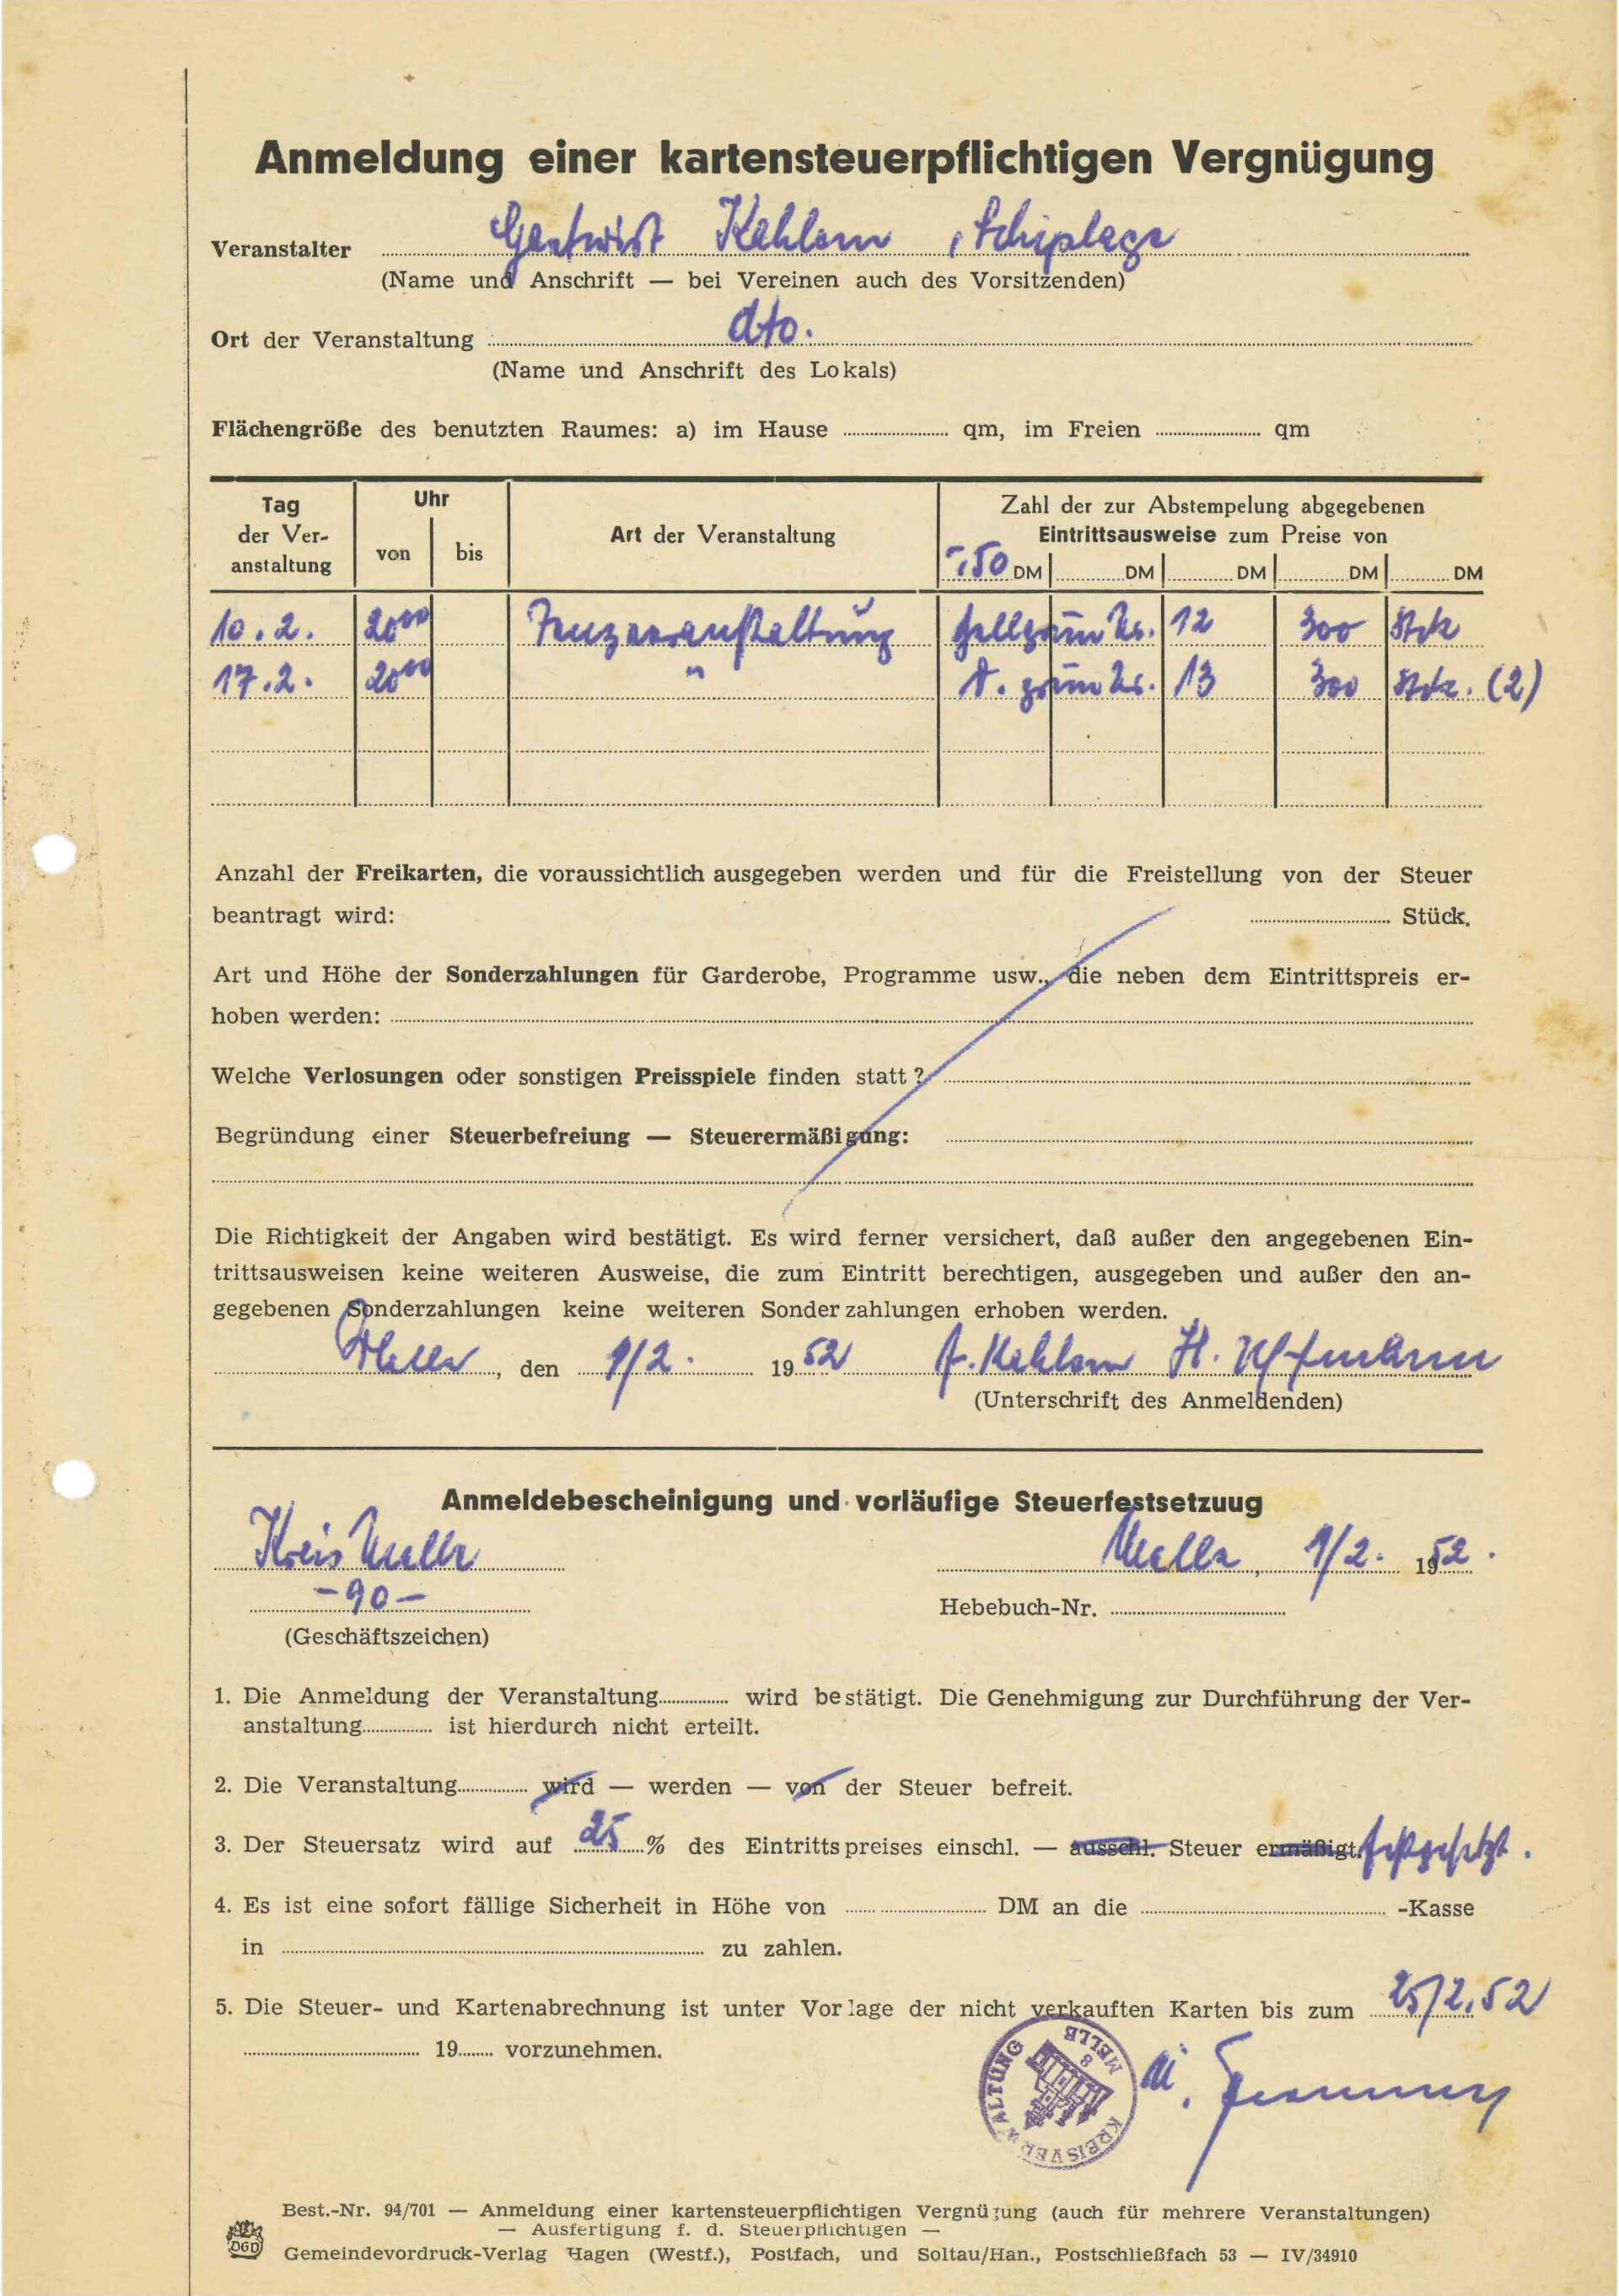 Anmeldung einer kartensteuerpflichtigen Vergnügung
Veranstalter Gastwirt Kahlern, Schiplage
(Name und Anschrift — bei Vereinen auch des Vorsitzenden)
Ort der Veranstaltung dto.
(Name und Anschrift des Lokals)
Flächengröße des benutzten Raumes: a) im Hause qm, im Freien qm
Tag der Veranstaltung
Uhr
von bis
Art der Veranstaltung
Zahl der zur Abstempelung abgegebenen
Eintrittsausweise zum Preise von
-,50 DM DM DM DM DM
10.2. 20⁰⁰ Tanzveranstaltung hellgrün Nr. 12 300 Stck
17.2. 20⁰⁰ " d. grün Nr. 13 300 Stck. (2)
Anzahl der Freikarten, die voraussichtlich ausgegeben werden und für die Freistellung von der Steuer
beantragt wird: Stück.
Art und Höhe der Sonderzahlungen für Garderobe, Programme usw., die neben dem Eintrittspreis er-
hoben werden:
Welche Verlosungen oder sonstigen Preisspiele finden statt?
Begründung einer Steuerbefreiung — Steuerermäßigung:
Die Richtigkeit der Angaben wird bestätigt. Es wird ferner versichert, daß außer den angegebenen Ein-
trittsausweisen keine weiteren Ausweise, die zum Eintritt berechtigen, ausgegeben und außer den an-
gegebenen Sonderzahlungen keine weiteren Sonderzahlungen erhoben werden.
Melle, den 9/2. 1952 Kahlern H.
(Unterschrift des Anmeldenden)
Anmeldebescheinigung und vorläufige Steuerfestsetzuug
Kreis Melle Melle, 9/2. 1952.
-90- Hebebuch-Nr.
(Geschäftszeichen)
1. Die Anmeldung der Veranstaltung wird bestätigt. Die Genehmigung zur Durchführung der Ver-
anstaltung ist hierdurch nicht erteilt.
2. Die Veranstaltung wird — werden — von der Steuer befreit.
3. Der Steuersatz wird auf 25 % des Eintrittspreises einschl. — ausschl. Steuer ermäßigt. festgesetzt.
4. Es ist eine sofort fällige Sicherheit in Höhe von DM an die -Kasse
in zu zahlen.
5. Die Steuer- und Kartenabrechnung ist unter Vorlage der nicht verkauften Karten bis zum 25/2.52
19 vorzunehmen.
KREISVERWALTUNG MELLE 8
Best.-Nr. 94/701 — Anmeldung einer kartensteuerpflichtigen Vergnügung (auch für mehrere Veranstaltungen)
— Ausfertigung f. d. Steuerpflichtigen —
DGD Gemeindevordruck-Verlag Hagen (Westf.), Postfach, und Soltau/Han., Postschließfach 53 — IV/34910